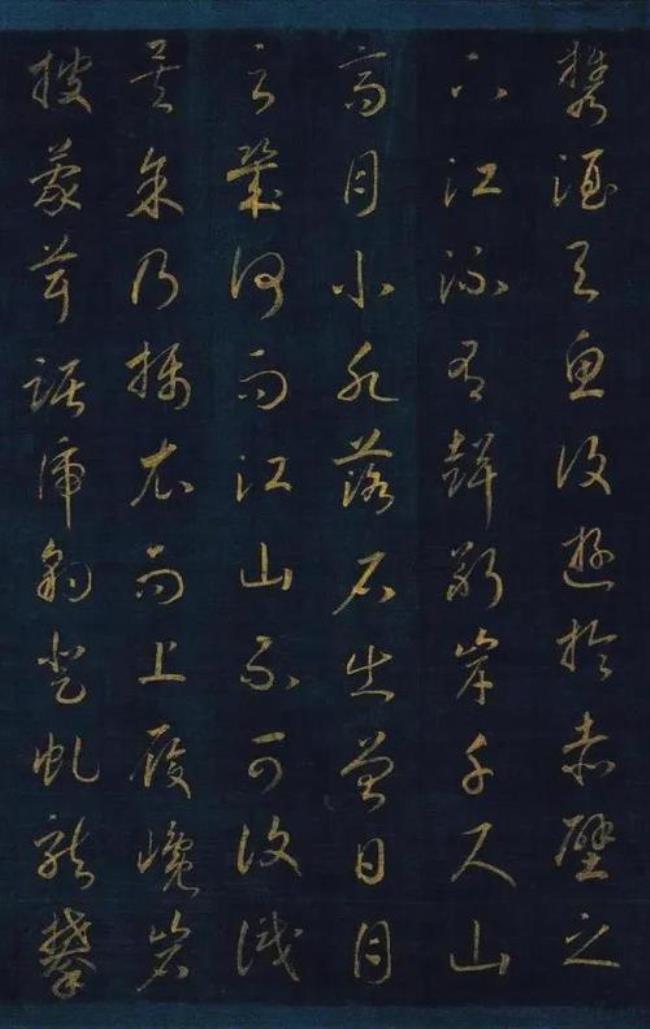 攜酒與魚復遊於赤壁之
下江流有聲斷岸千尺山
高月小水落石出曾日月
之幾何而江山不可復識
矣予乃攝衣而上履巉岩
披蒙茸踞虎豹登虬龍攀